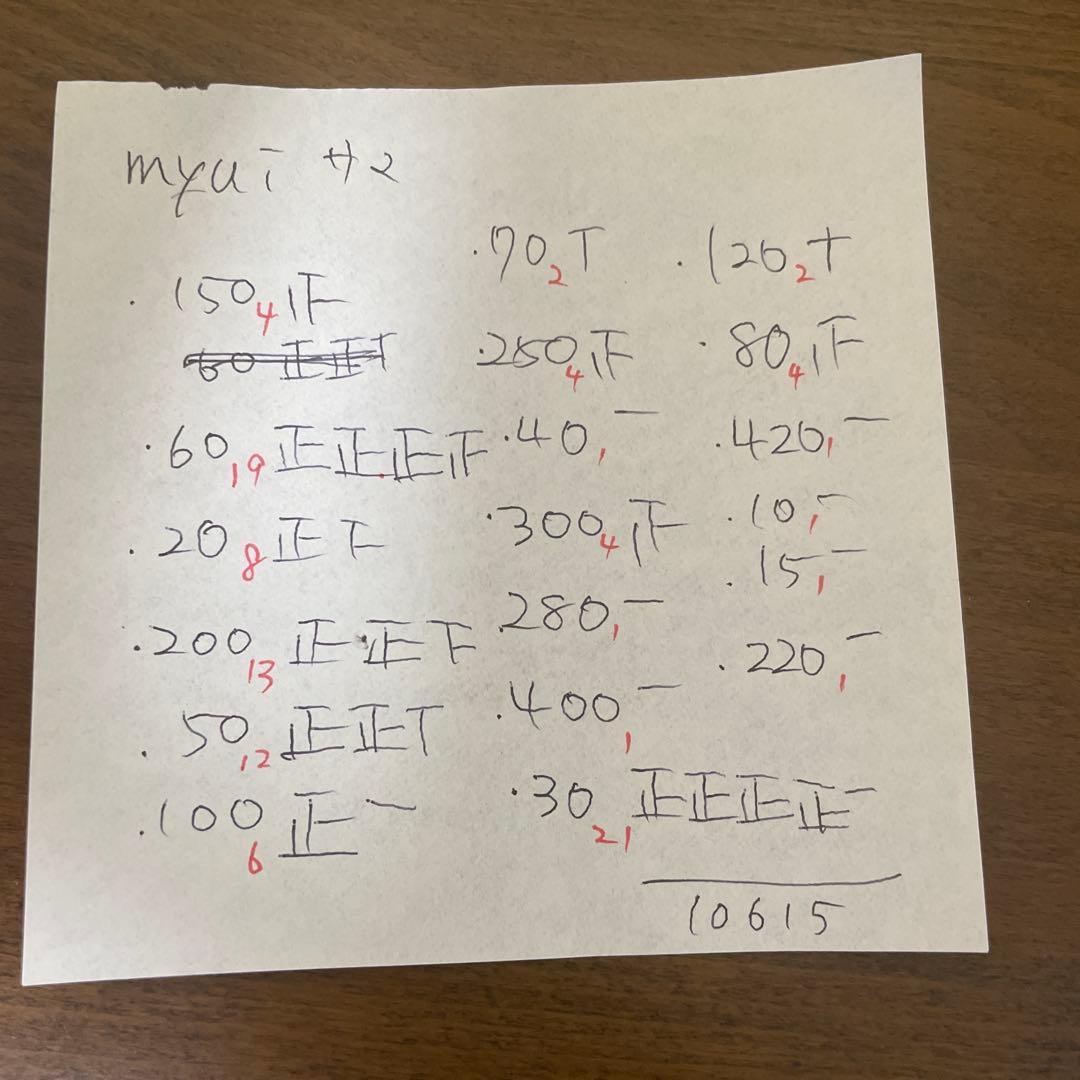 myui #2
・150 4 正
60 正正T
・60 19 正正正正
・20 8 正下
・200 13 正正下
・50 12 正正T
・100 6 正一
・70 2 T
・250 4 正
・40 1 一
・300 4 正
・280 1 一
・400 1 一
・30 21 正正正正一
・120 2 T
・80 4 正
・420 1 一
・10 1 一
・15 1 一
・220 1 一
10615